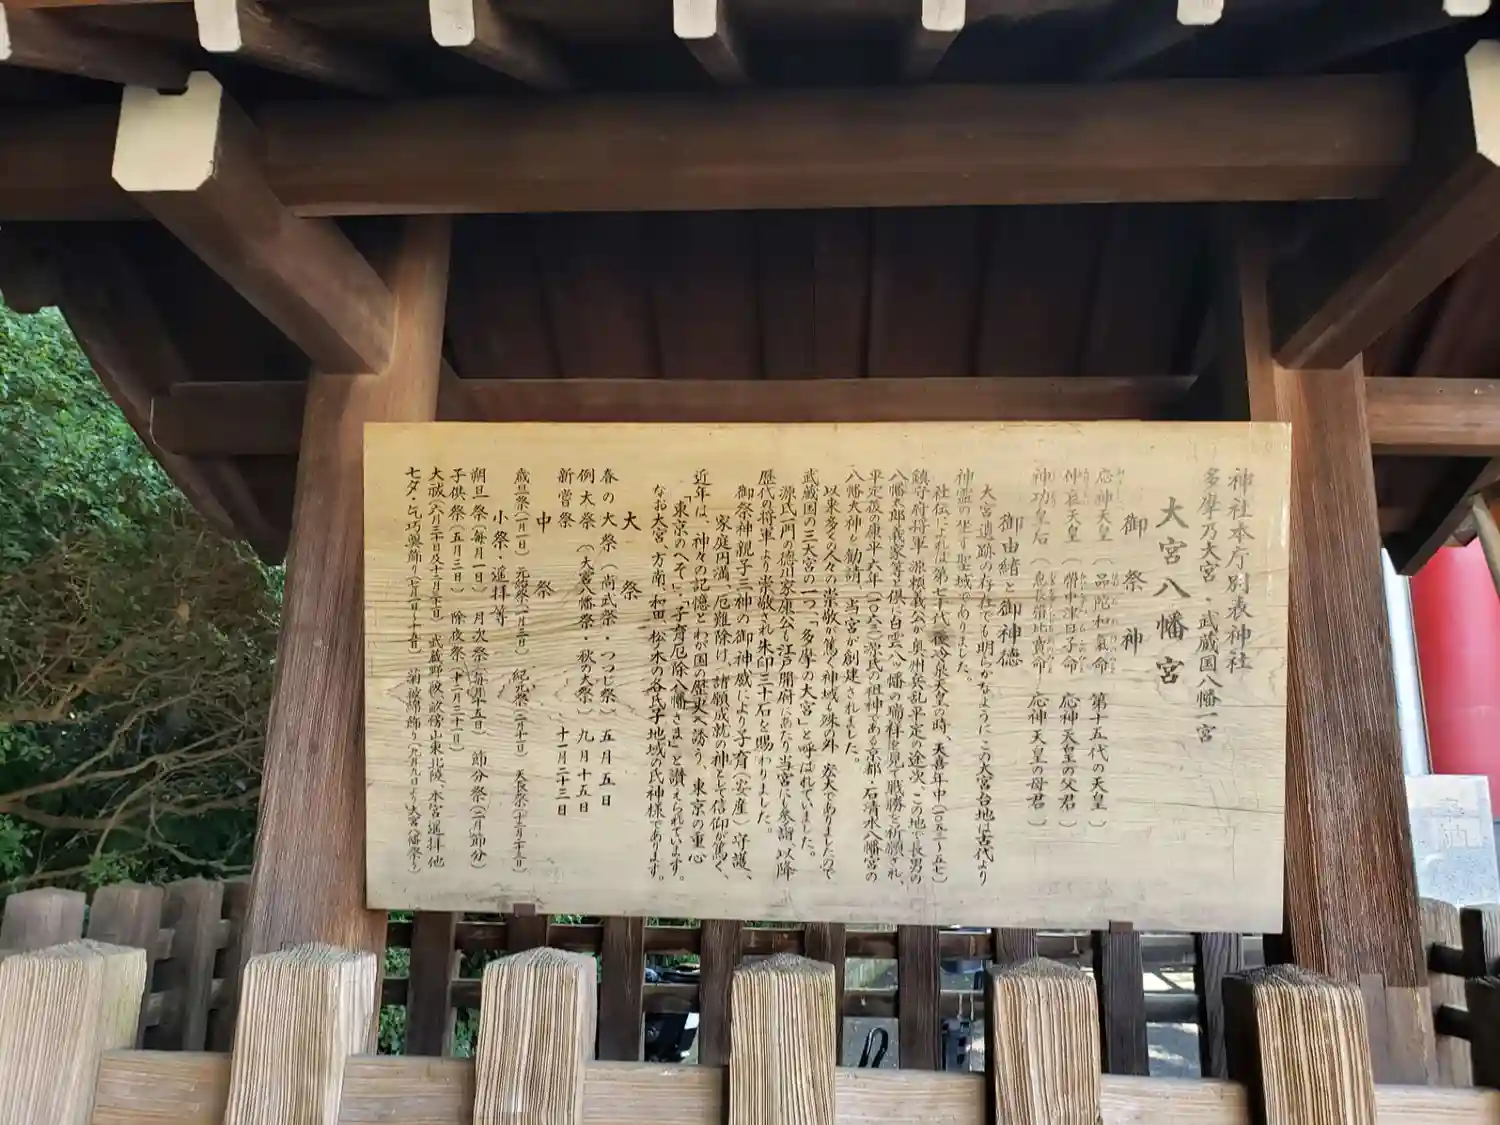 神社本庁別表神社
多摩乃大宮・武蔵国八幡一宮
大宮八幡宮
御祭神
応神天皇(品陀和氣命 第十五代の天皇)
仲哀天皇(帶中津日子命 応神天皇の父君)
神功皇后(息長帶比賣命 応神天皇の母君)
御由緒と御神徳
大宮遺跡の存在でも明らかなようにこの大宮台地は古代より
神霊の坐す聖域でありました。
社伝によれば第七十代後冷泉天皇の時、天喜年中(一〇五三〜五七)
鎮守府将軍源頼義公が奥州兵乱平定の途次、この地で長男の
八幡太郎義家等と倶に白雲八つ幡の瑞祥を見て戦勝を祈願され、
平定後の康平六年(一〇六三)源氏の祖神である京都・石清水八幡宮の
八幡大神を勧請、当宮が創建されました。
以来多くの人々の崇敬が篤く神域も殊の外、宏大でありましたので
武蔵国の三大宮の一つ「多摩の大宮」と呼ばれていました。
源氏一門の徳川家康公も江戸開府にあたり当宮にも参詣、以降
歴代の将軍より崇敬され朱印三十石を賜わりました。
御祭神親子三神の御神威により子育(安産)守護、
家庭円満、厄難除け、諸願成就の神として信仰が篤く、
近年は、神々の記憶とわが国の歴史へ誘う、東京の重心
「東京のへそ」、「子育厄除八幡さま」と讃えられています。
なお大宮、方南、和田、松ノ木の各氏子地域の氏神様であります。
大祭
春の大祭(尚武祭・つつじ祭) 五月五日
例大祭(大宮八幡祭・秋の大祭) 九月十五日
新嘗祭 十一月二十三日
中祭
歳旦祭(一月一日) 元始祭(一月三日) 紀元祭(二月十一日) 天長祭(十二月二十三日)
小祭・遥拝等
朔旦祭(毎月一日) 月次祭(毎月十五日) 節分祭(二月節分)
子供祭(五月三日) 除夜祭(十二月三十一日)
大祓(六月三十日及十二月三十一日) 武蔵野陵、畝傍山東北陵、本宮遥拝他
七夕・乞巧奠飾り(七月一日〜十五日) 菊被綿飾り(九月九日より大宮八幡祭)
奉納